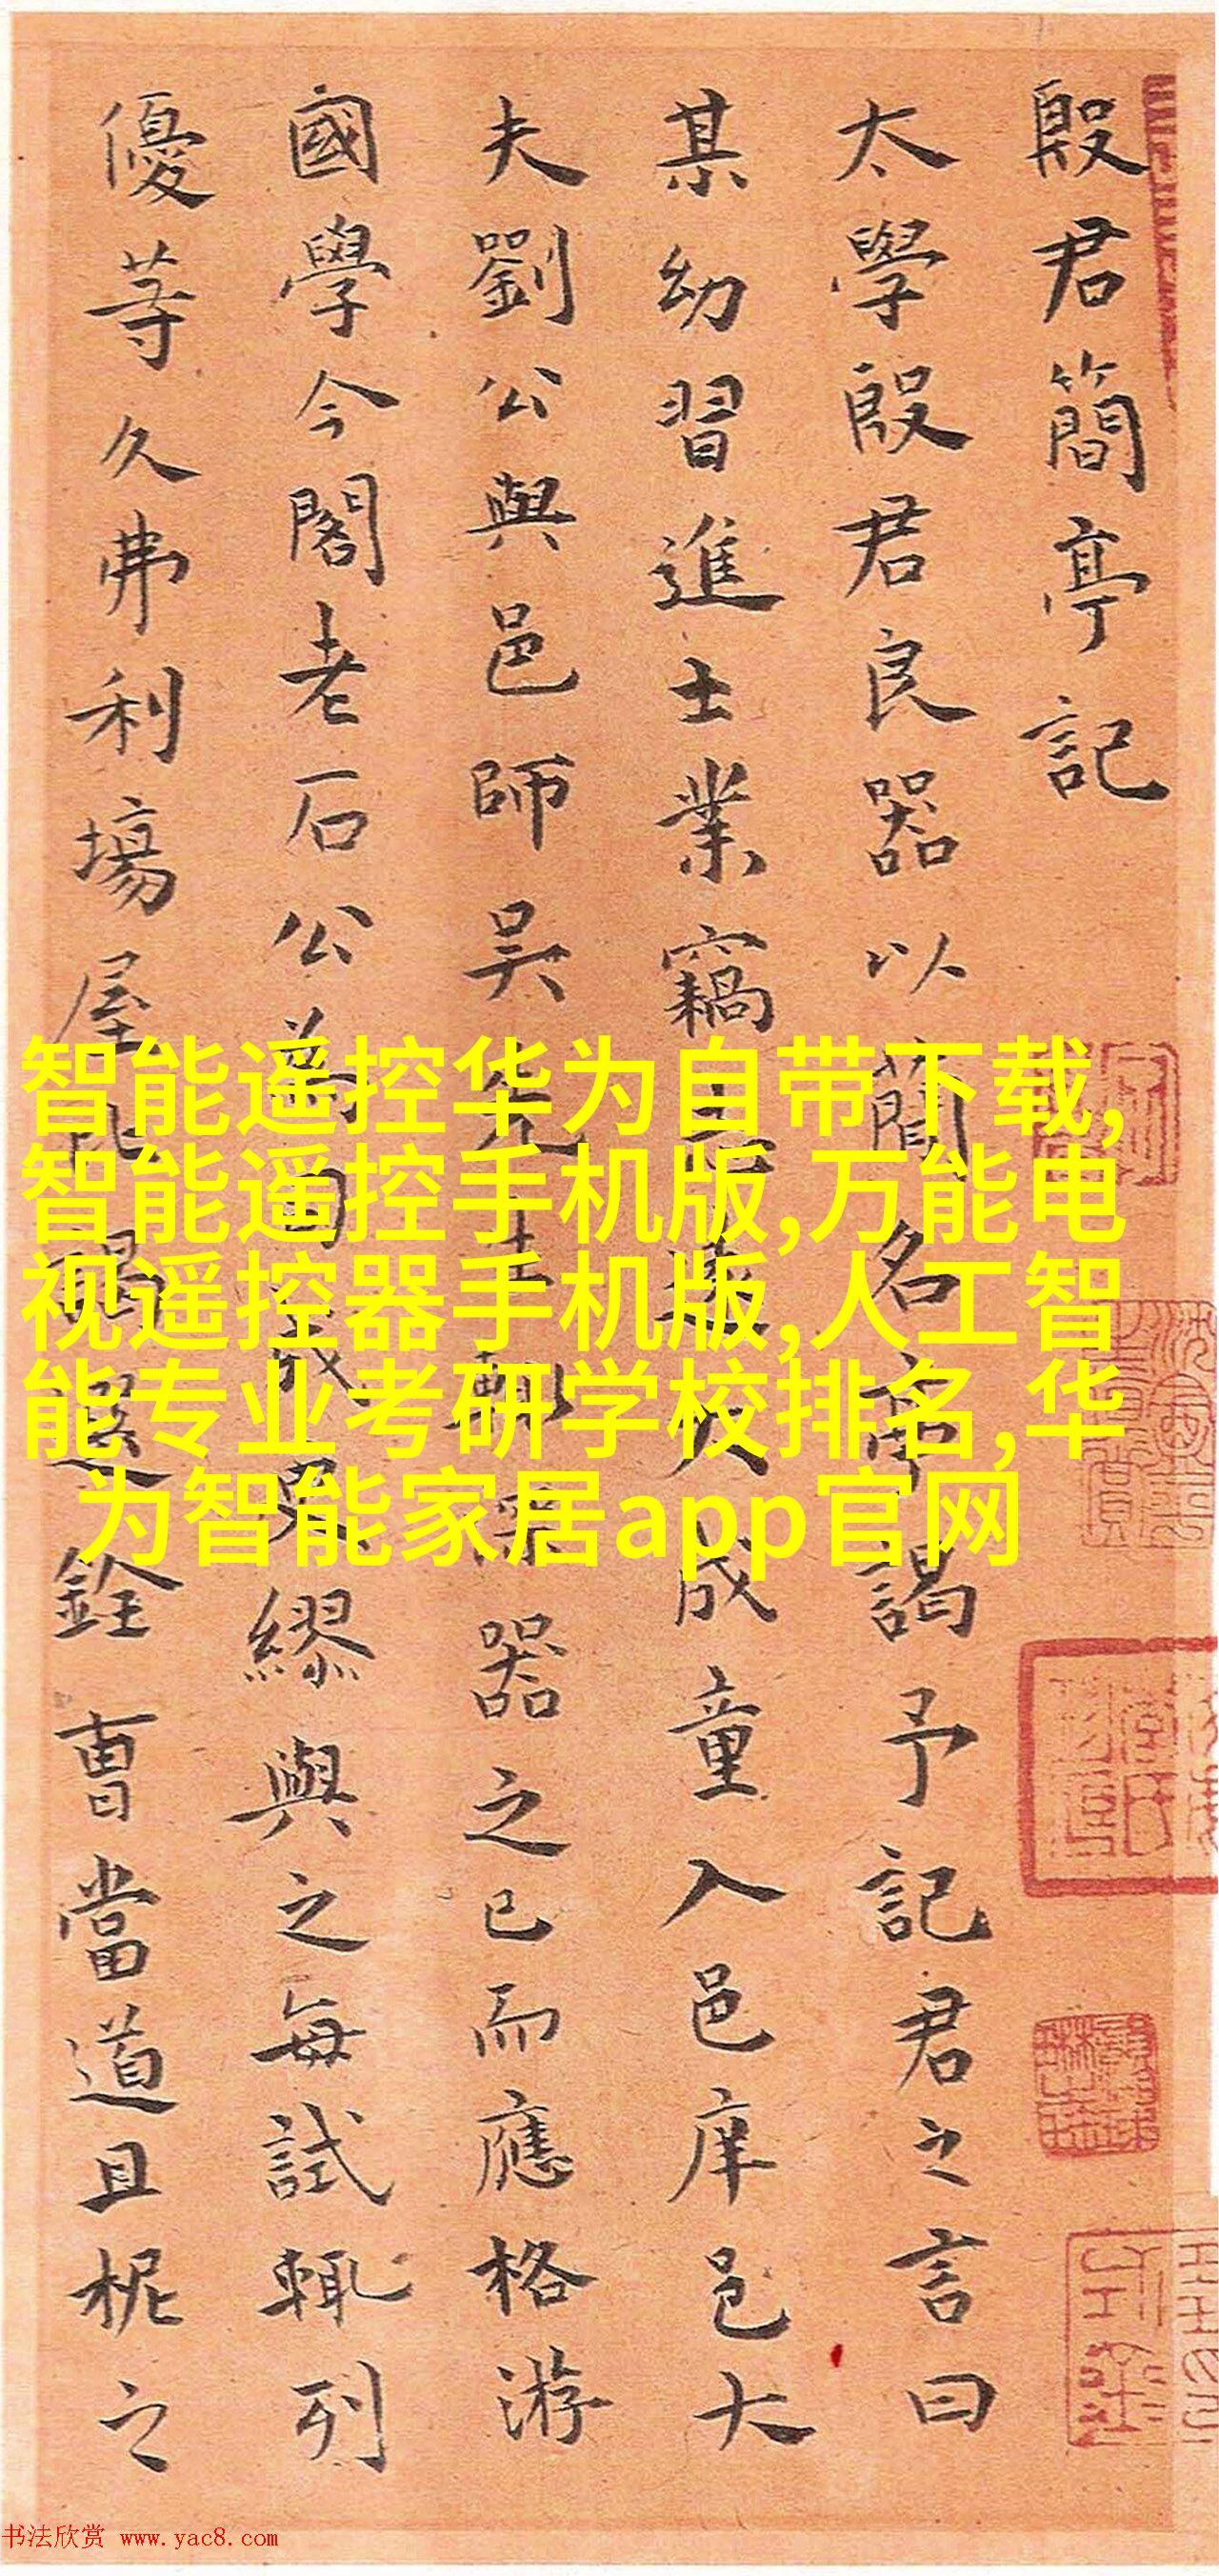 殷君簡亭記
太學殷君良器以簡名亭謁予記君之言曰
某幼習進士業竊
成童入邑庠邑大
夫劉公與邑師吳先生輒深器之已而應格游
國學今閣老石公為司成
繆與之每試輒列
優等久弗利場屋比謁選銓曹當道且柅之
智能遥控华为自带下载,
智能遥控手机版,万能电
视遥控器手机版,人工智
能专业考研学校排名,华
为智能家居app官网
书法欣赏 www.yac8.com